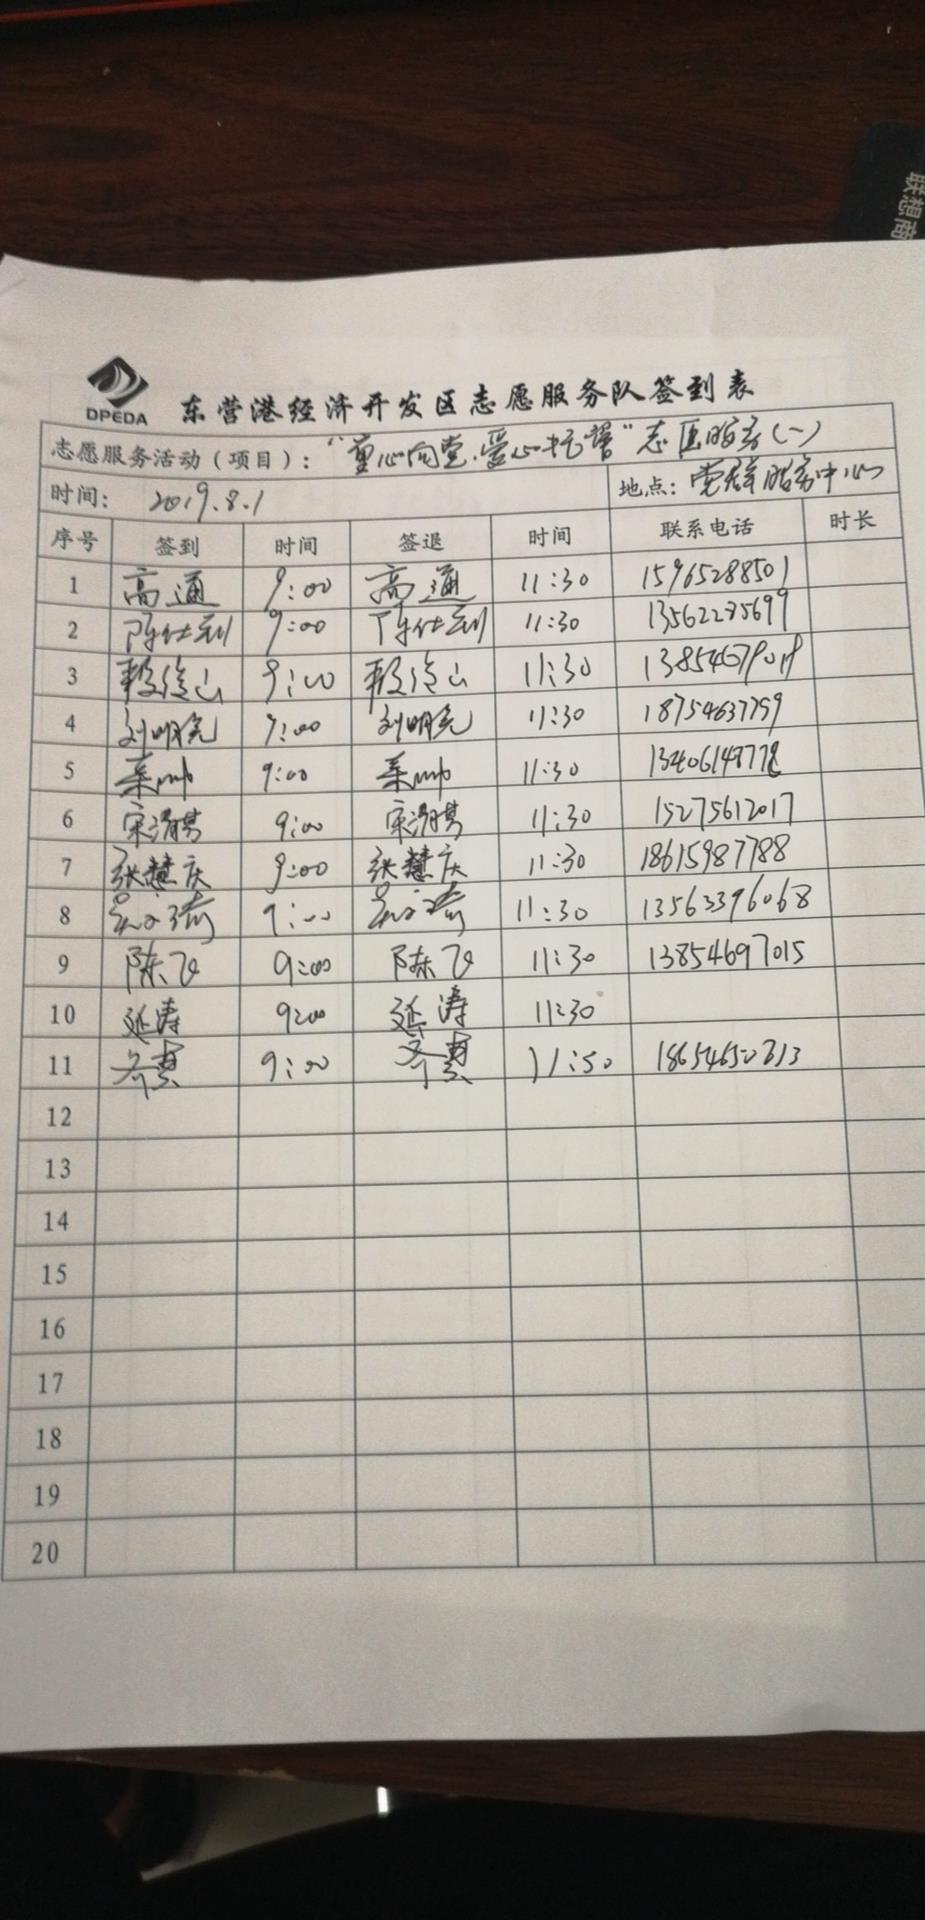 联想商
DPEDA
东营港经济开发区志愿服务队签到表
志愿服务活动（项目）：“童心向党·爱心托管”志愿服务（一）
时间： 2019.8.1 地点：党群服务中心
序号 签到 时间 签退 时间 联系电话 时长
1 高通 9:00 高通 11:30 15965288501
2 陈仕利 9:00 陈仕利 11:30 13562275699
3 9:00 11:30
4 刘明亮 9:00 刘明亮 11:30 18754637759
5 9:00 11:30
6 9:00 11:30 15275612017
7 张慧庆 9:00 张慧庆 11:30 18615987788
8 9:00 11:30 13563396068
9 陈飞 9:00 陈飞 11:30 13854697015
10 延涛 9:00 延涛 11:30
11 9:00 11:30
12
13
14
15
16
17
18
19
20